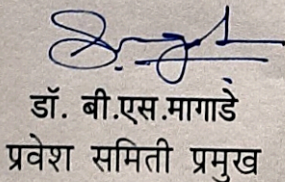 डॉ. बी.एस.मागाडे
प्रवेश समिती प्रमुख